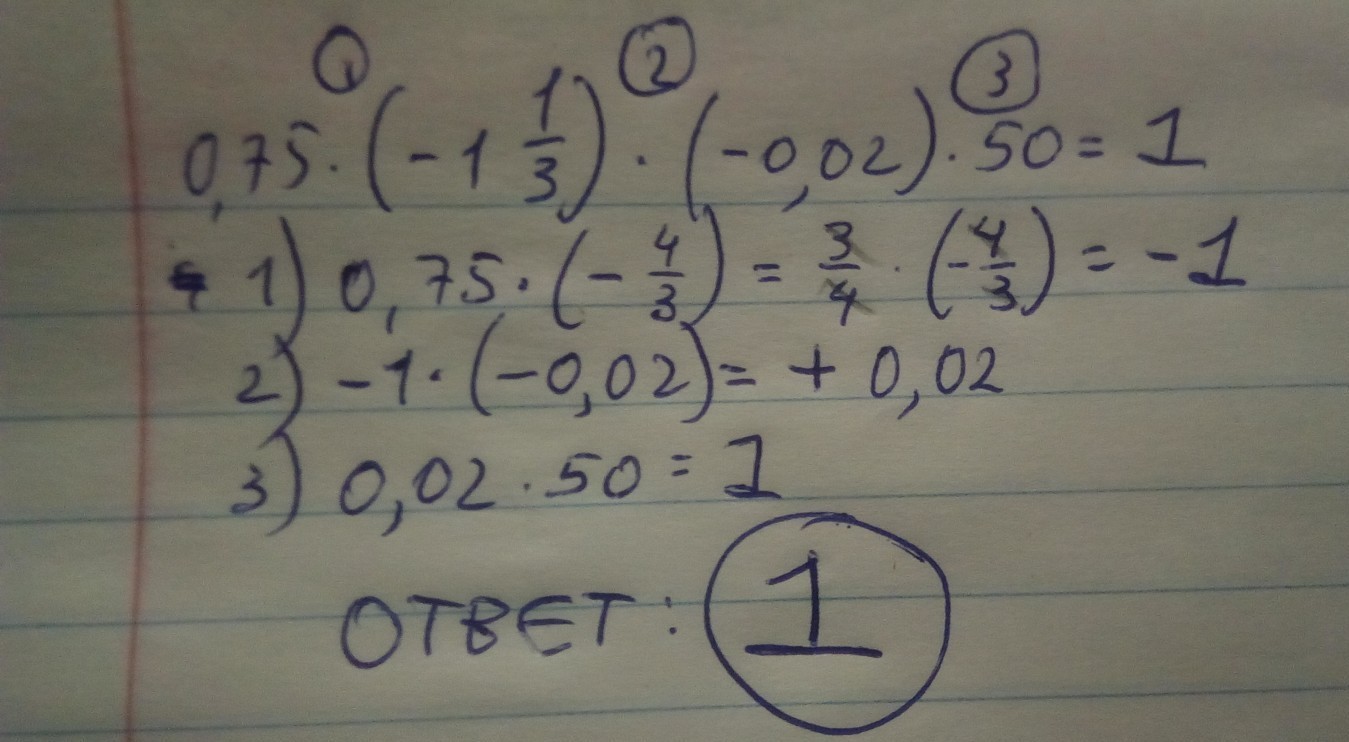 ① ② ③
0,75 · (-1 1/3) · (-0,02) · 50 = 1
1) 0,75 · (- 4/3) = 3/4 · (- 4/3) = -1
2) -1 · (-0,02) = + 0,02
3) 0,02 · 50 = 1
ОТВЕТ: 1